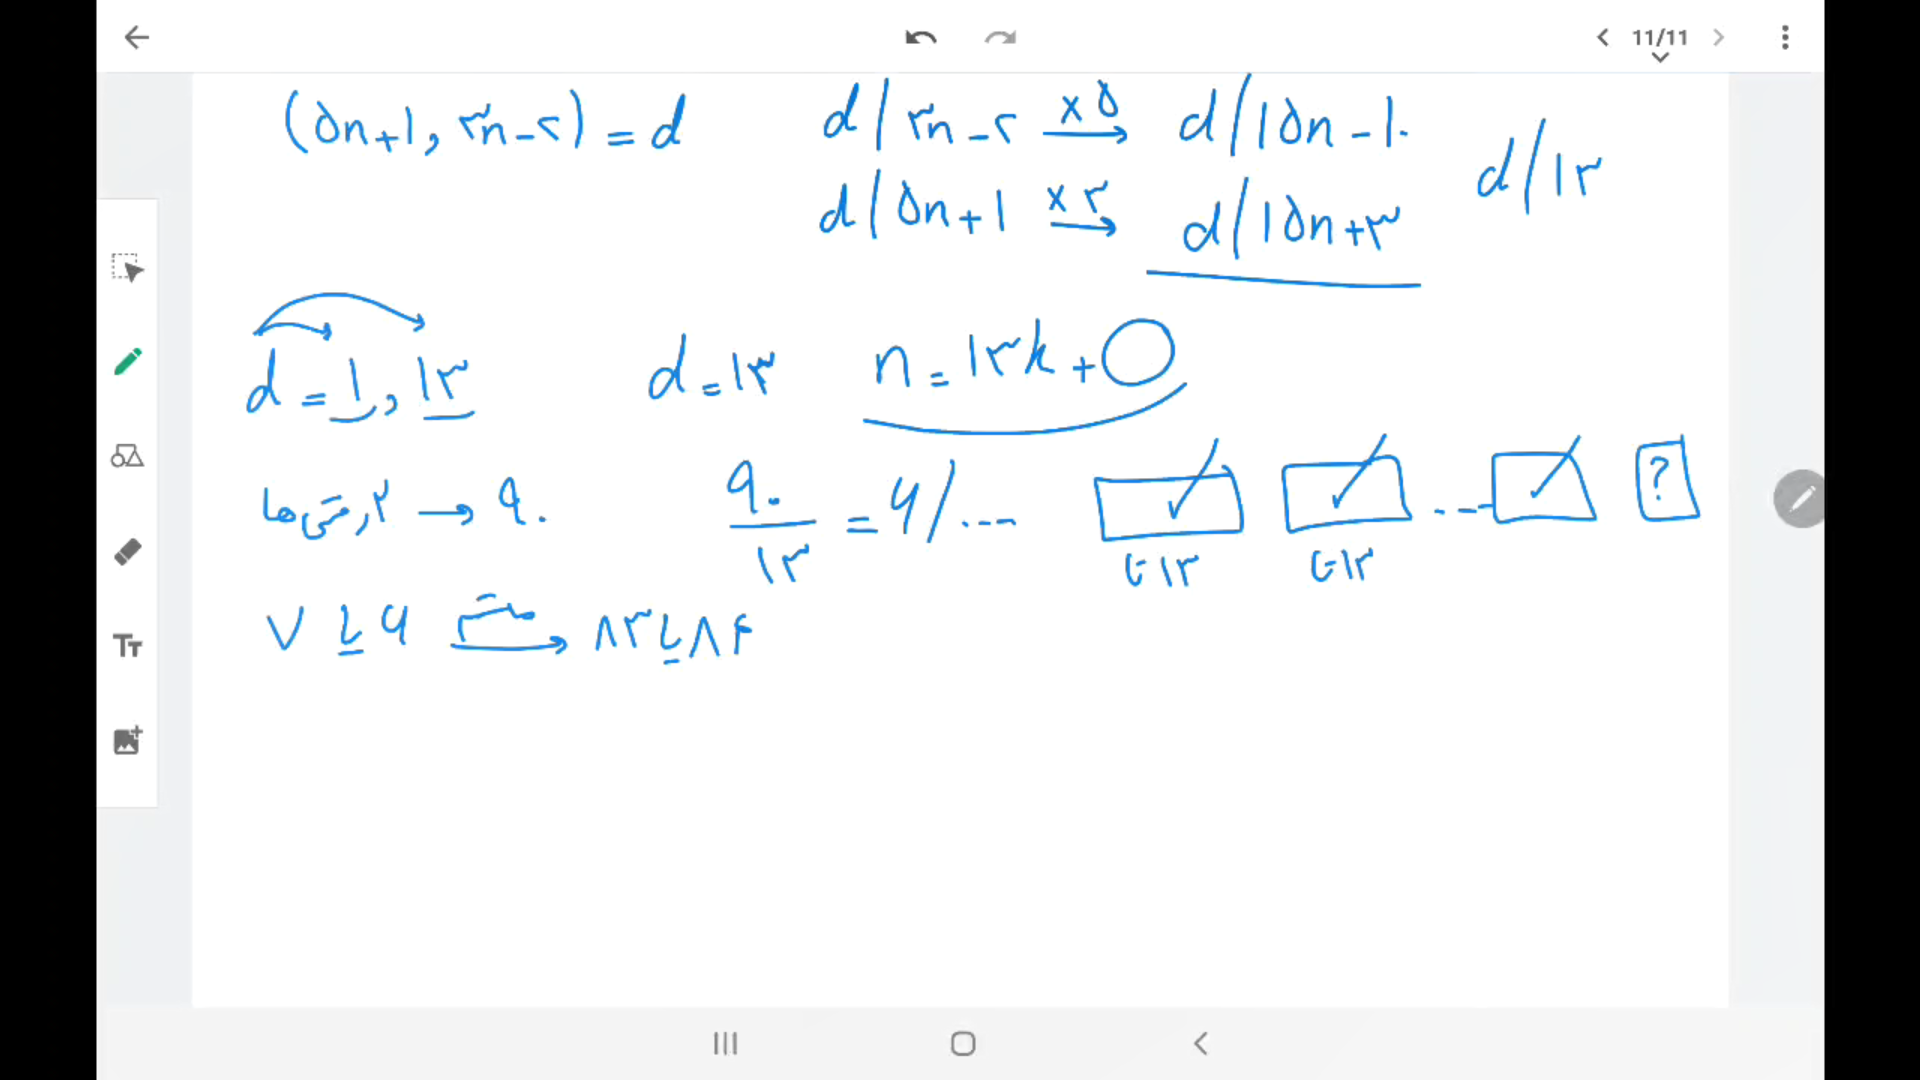 11/11
(۵n+1, ۳n-۲) = d
d | ۳n-۲ ×۵→ d | ۱۵n-۱۰
d | ۵n+1 ×۳→ d | ۱۵n+۳
d | ۱۳
d = ۱, ۱۳
d = ۱۳
n = ۱۳k + ○
۲ رقمی‌ها → ۹۰
۹۰/۱۳ = ۶/...
تا ۱۳
تا ۱۳
...
?
۷ یا ۶ → ۸۳ یا ۸۴
Tт